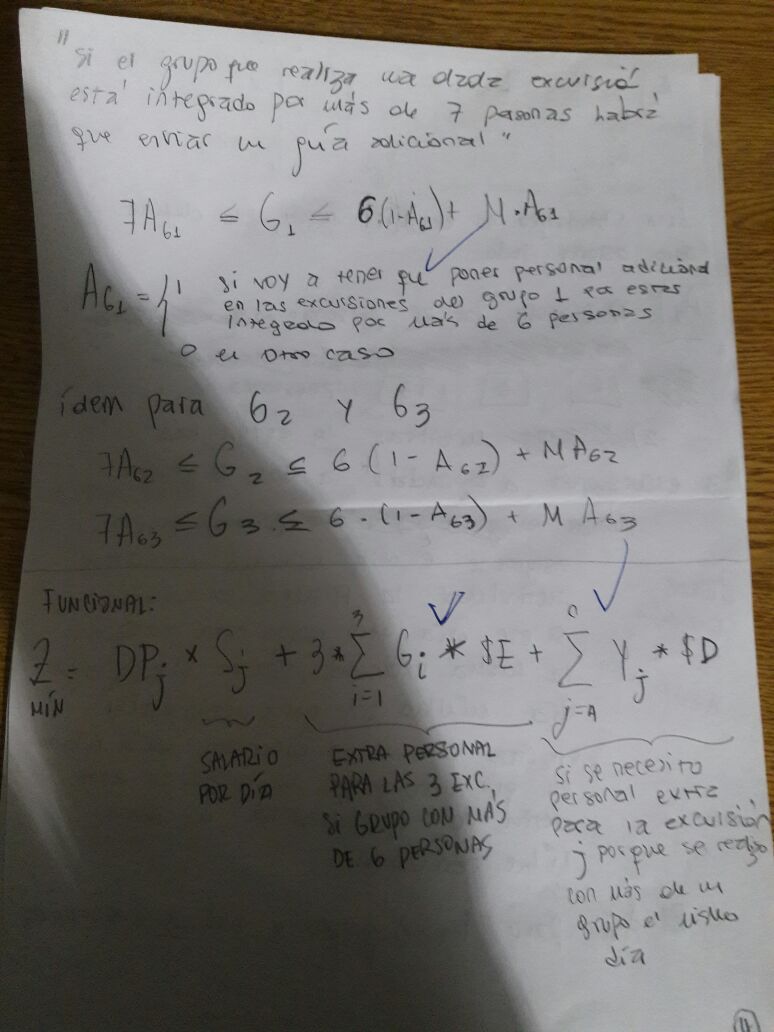 "Si el grupo que realiza una dada excursió
está integrado por más de 7 pasonas habrá
que enviar un guía adicional"
7A_G1 ≤ G_1 ≤ 6.(1-A_G1)+ M.A_G1
A_G1 = { 1 si voy a tener que poner personal adicional
en las excursiones del grupo 1 por estar
integrado por más de 6 personas
0 en otro caso
ídem para G2 y G3
7A_G2 ≤ G_2 ≤ 6 (1 - A_G2) + MA_G2
7A_G3 ≤ G_3 ≤ 6 . (1 - A_G3) + M A_G3
FUNCIONAL:
Z = DP_j × S_j + 3 * ∑ 3 i=1 G_i * $E + ∑ j=A Y_j * $D
MÍN
SALARIO
POR DÍA
EXTRA PERSONAL
PARA LAS 3 EXC.
SI GRUPO CON MÁS
DE 6 PERSONAS
si se necesito
personal extra
para la excursión
j porque se realizo
con más de un
grupo el mismo
día